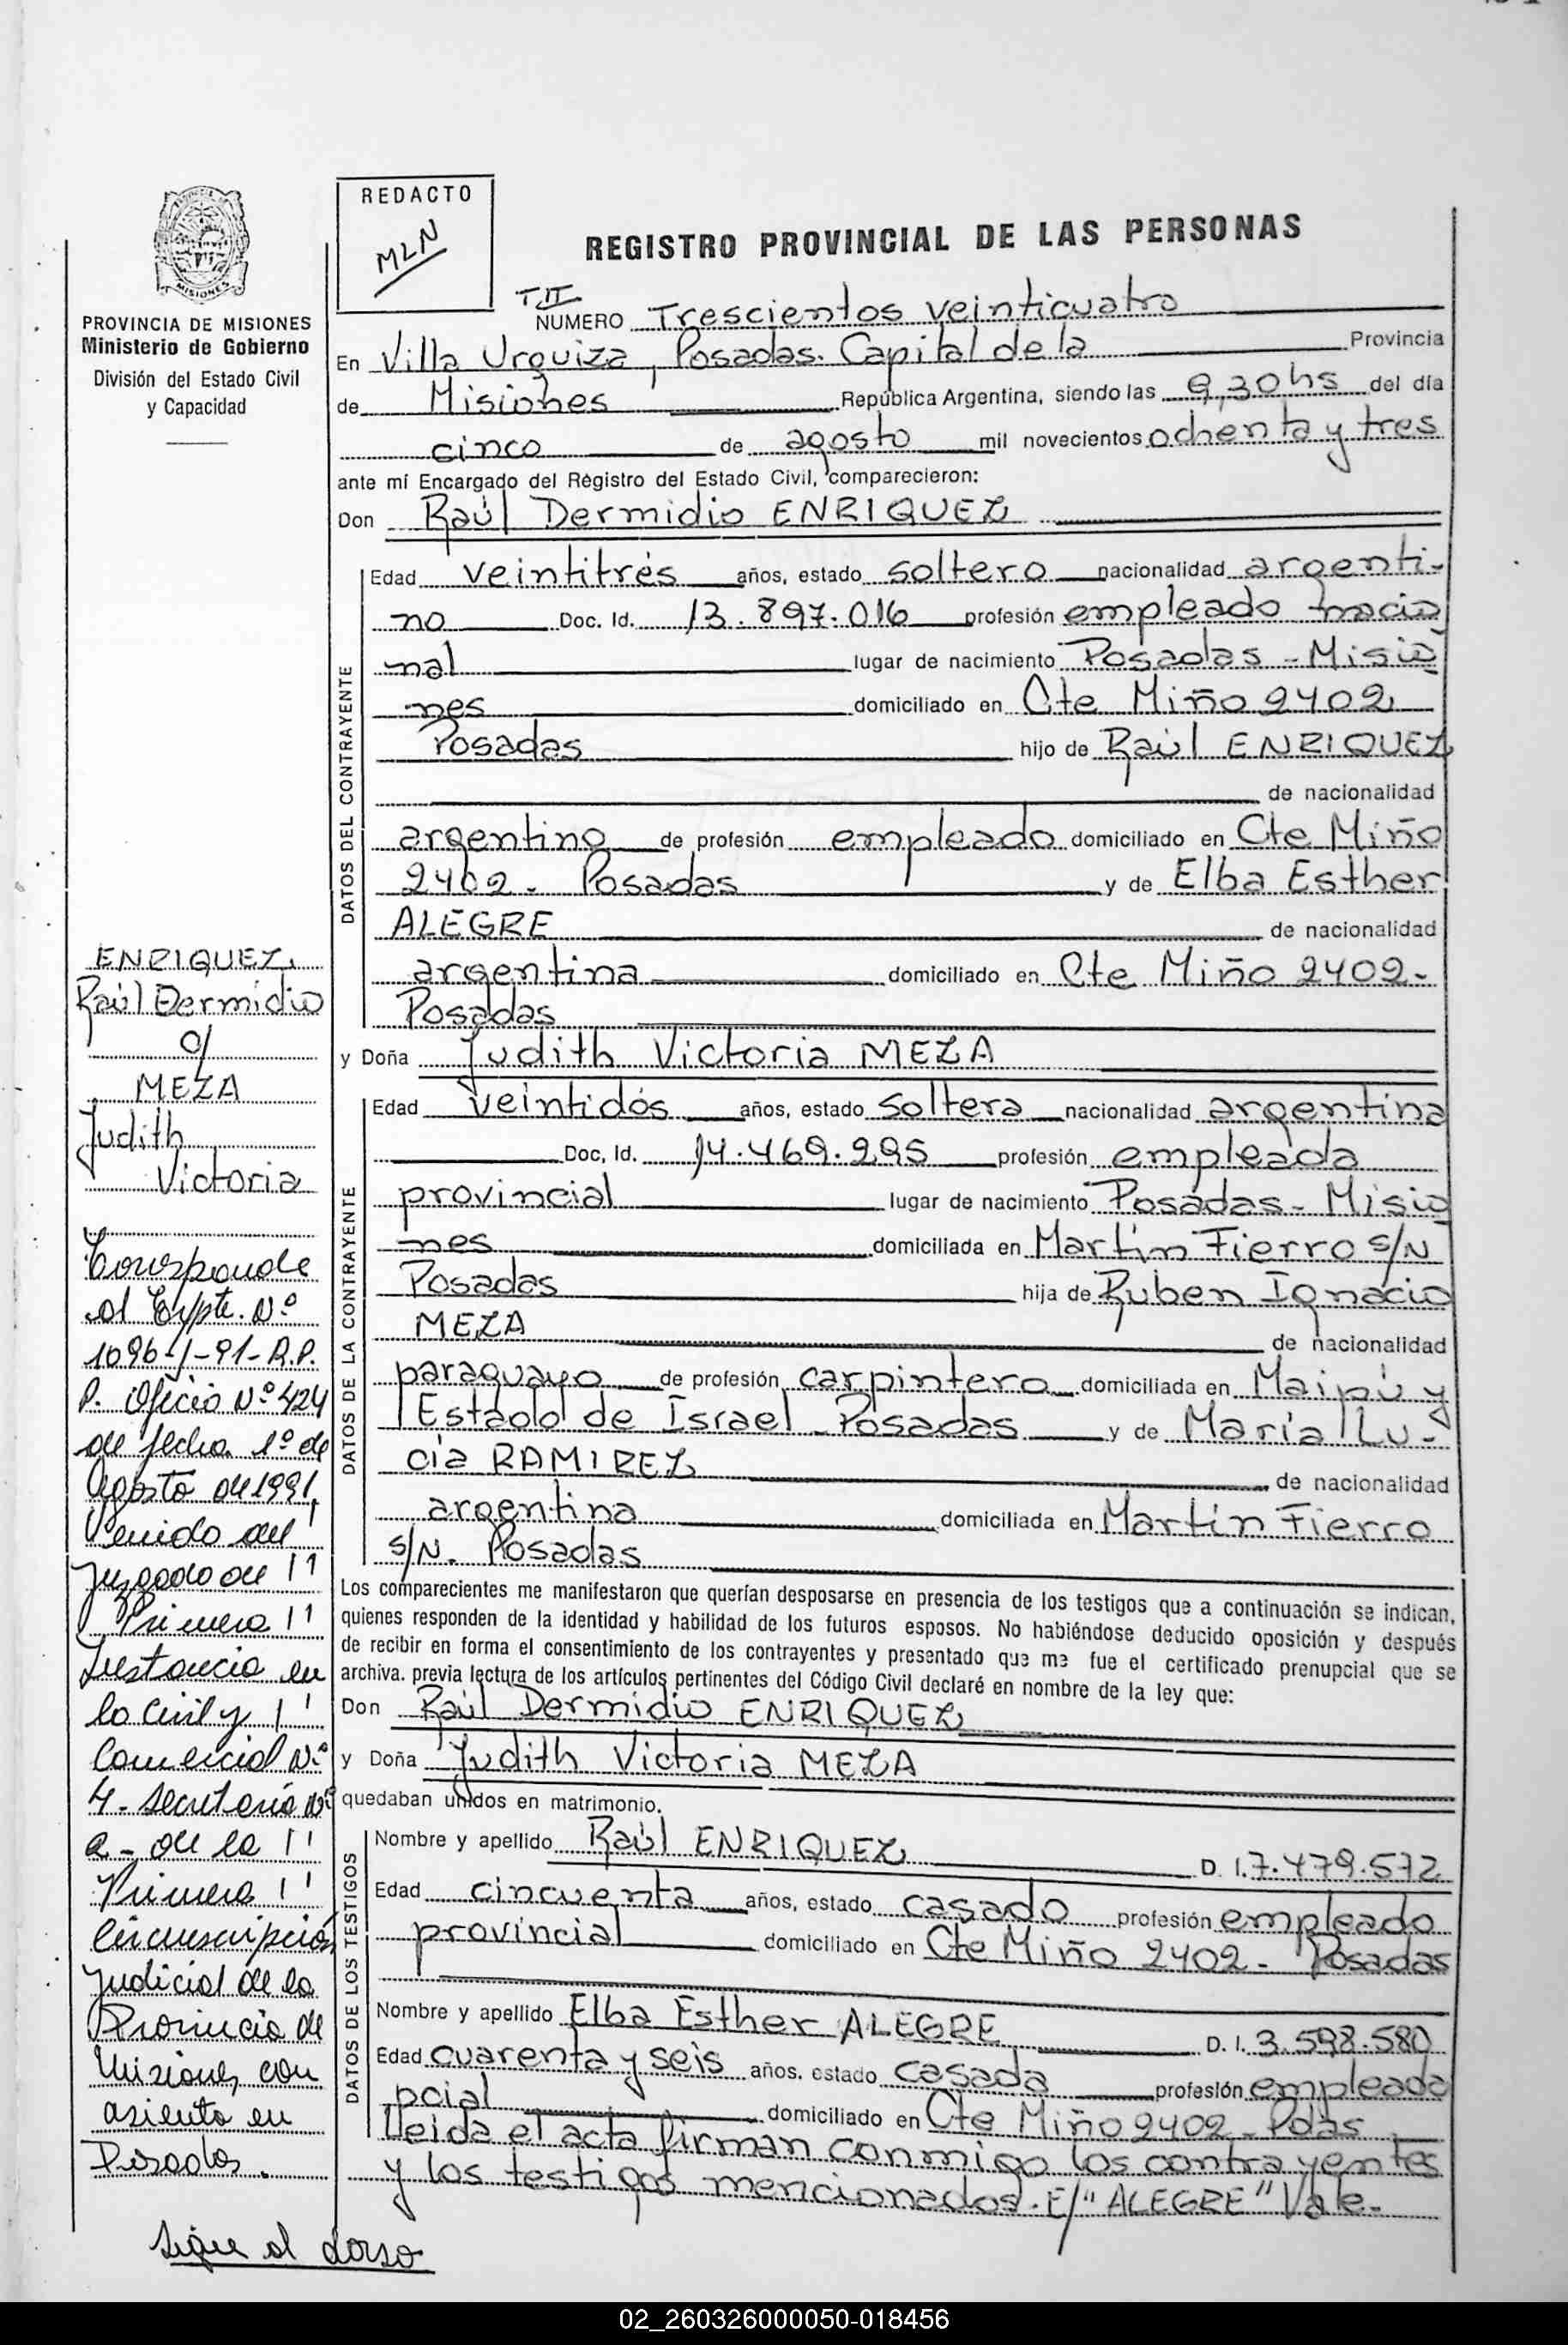 REDACTO
MLN
REGISTRO PROVINCIAL DE LAS PERSONAS
MISIONES
PROVINCIA DE MISIONES
Ministerio de Gobierno
División del Estado Civil
y Capacidad
T II
NUMERO Trescientos veinticuatro
En Villa Urquiza, Posadas. Capital de la Provincia
de Misiones República Argentina, siendo las 9,30hs del día
cinco de agosto mil novecientos ochenta y tres
ante mí Encargado del Registro del Estado Civil, comparecieron:
Don Raúl Dermidio ENRIQUEZ
DATOS DEL CONTRAYENTE
Edad veintitrés años, estado soltero nacionalidad argenti-
no Doc. Id. 13.897.016 profesión empleado nacio
nal lugar de nacimiento Posadas - Misio
nes domiciliado en Cte Miño 2402
Posadas hijo de Raúl ENRIQUEZ
de nacionalidad
argentino de profesión empleado domiciliado en Cte Miño
2402 - Posadas y de Elba Esther
ALEGRE de nacionalidad
argentina domiciliado en Cte Miño 2402-
Posadas
y Doña Judith Victoria MEZA
DATOS DE LA CONTRAYENTE
Edad veintidós años, estado soltera nacionalidad argentina
Doc, Id. 14.469.295 profesión empleada
provincial lugar de nacimiento Posadas - Misio
nes domiciliada en Martín Fierro s/N
Posadas hija de Ruben Ignacio
MEZA de nacionalidad
paraguayo de profesión carpintero domiciliada en Maipú y
Estado de Israel - Posadas y de María Lu-
cía RAMIREZ de nacionalidad
argentina domiciliada en Martín Fierro
s/N. Posadas
Los comparecientes me manifestaron que querían desposarse en presencia de los testigos que a continuación se indican,
quienes responden de la identidad y habilidad de los futuros esposos. No habiéndose deducido oposición y después
de recibir en forma el consentimiento de los contrayentes y presentado que me fue el certificado prenupcial que se
archiva. previa lectura de los artículos pertinentes del Código Civil declaré en nombre de la ley que:
Don Raúl Dermidio ENRIQUEZ
y Doña Judith Victoria MEZA
quedaban unidos en matrimonio.
DATOS DE LOS TESTIGOS
Nombre y apellido Raúl ENRIQUEZ D. I. 7.479.572
Edad cincuenta años, estado casado profesión empleado
provincial domiciliado en Cte Miño 2402 - Posadas
Nombre y apellido Elba Esther ALEGRE D. I. 3.598.580
Edad cuarenta y seis años. estado casada profesión empleada
pcial domiciliado en Cte Miño 2402 - Pdas
Leida el acta firman conmigo los contrayentes
y los testigos mencionados. E/"ALEGRE" Vale-
ENRIQUEZ,
Raúl Dermidio
c/
MEZA
Judith
Victoria
Corresponde
al Expte. Nº
1096-J-91-R.P.
P. Oficio Nº 424
de fecha 1º de
Agosto de 1991
Venido del
Juzgado de
Primera
Instancia en
lo Civil y
Comercial Nº
4 - Secretaría Nº
2 - de la
Primera
Circunscripción
Judicial de la
Provincia de
Misiones, con
asiento en
Posadas.
Sigue al dorso
02_260326000050-018456